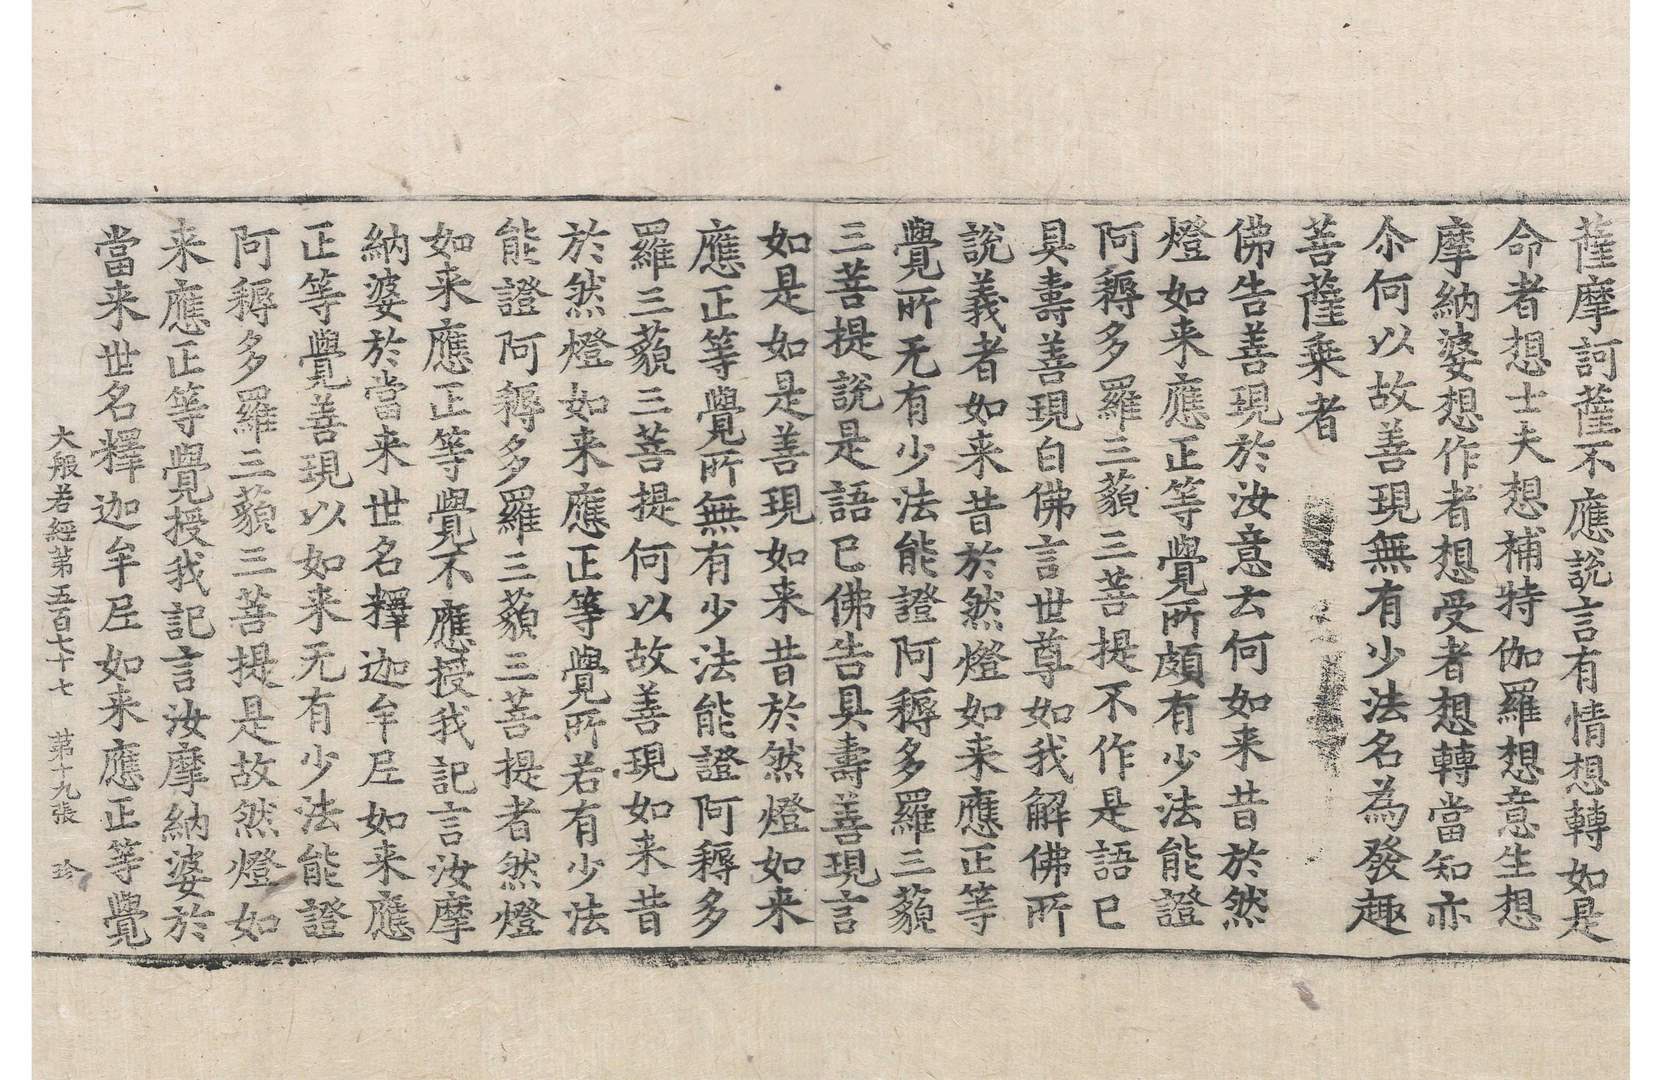 薩摩訶薩不應說言有情想轉如是
命者想士夫想補特伽羅想意生想
摩納婆想作者想受者想轉當知亦
尒何以故善現無有少法名為發趣
菩薩乗者
佛告善現於汝意云何如来昔於然
燈如来應正等覺所頗有少法能證
阿耨多羅三藐三菩提不作是語已
具壽善現白佛言世尊如我解佛所
說義者如来昔於然燈如来應正等
覺所无有少法能證阿耨多羅三藐
三菩提說是語已佛告具壽善現言
如是如是善現如来昔於然燈如来
應正等覺所無有少法能證阿耨多
羅三藐三菩提何以故善現如来昔
於然燈如来應正等覺所若有少法
能證阿耨多羅三藐三菩提者然燈
如来應正等覺不應授我記言汝摩
納婆於當来世名釋迦牟尼如来應
正等覺善現以如来无有少法能證
阿耨多羅三藐三菩提是故然燈如
来應正等覺授我記言汝摩納婆於
當来世名釋迦牟尼如来應正等覺
大般若經第五百七十七 第十九張 珍